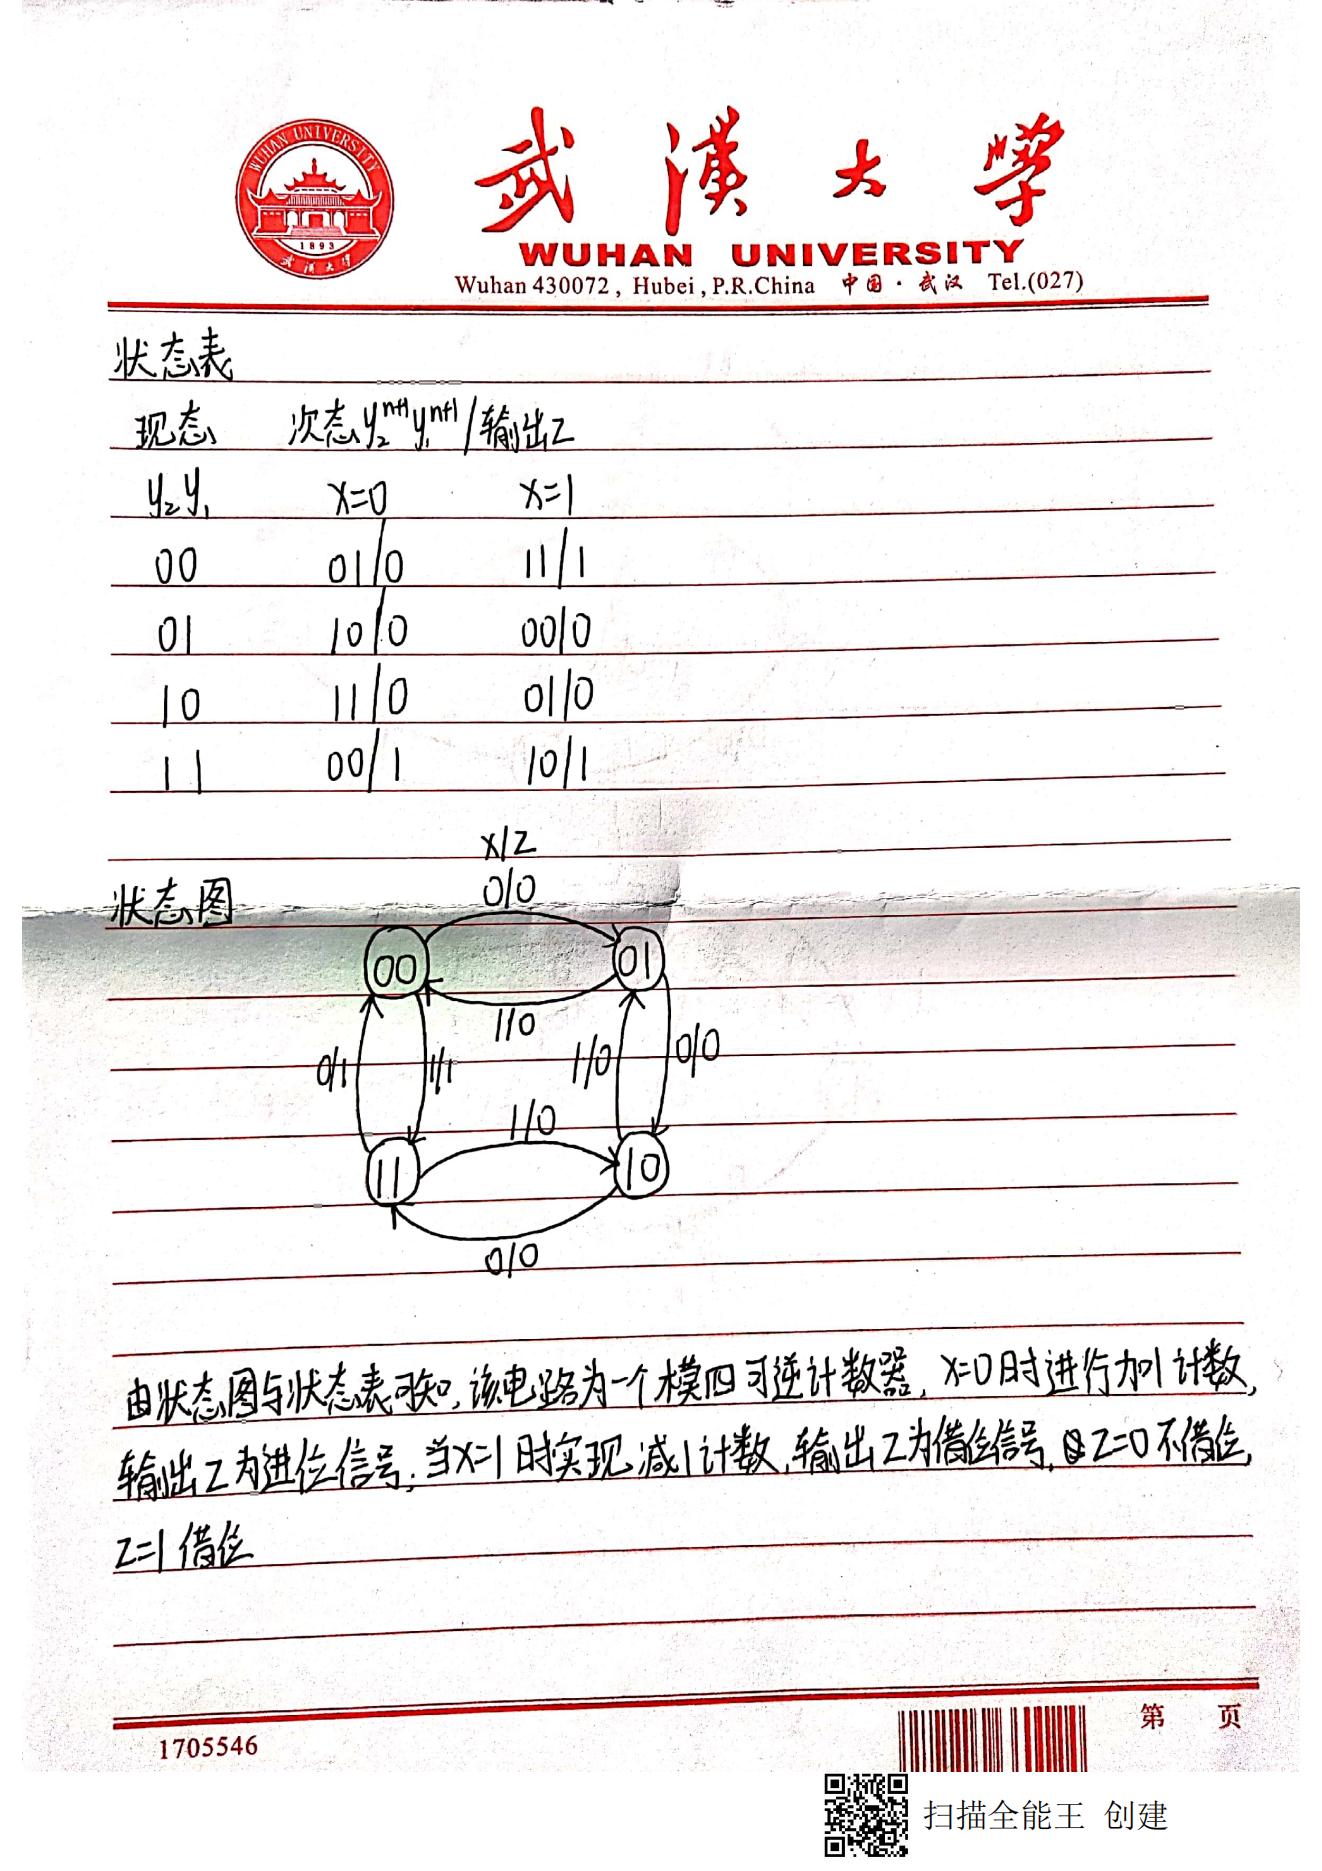 WUHAN UNIVERSITY
1893
武汉大学
武漢大學
WUHAN UNIVERSITY
Wuhan 430072, Hubei, P.R.China 中国·武汉 Tel.(027)
状态表
现态 次态y₂ⁿ⁺¹y₁ⁿ⁺¹/输出Z
y₂y₁ X=0 X=1
00 01/0 11/1
01 10/0 00/0
10 11/0 01/0
11 00/1 10/1
X/Z
0/0
状态图
00 01
1/0
0/1 1/1 1/0 0/0
1/0
11 10
0/0
由状态图与状态表可知,该电路为一个模四可逆计数器,X=0时进行加1计数,
输出Z为进位信号,当X=1时实现减1计数,输出Z为借位信号,Z=0不借位,
Z=1借位
第 页
1705546
扫描全能王 创建